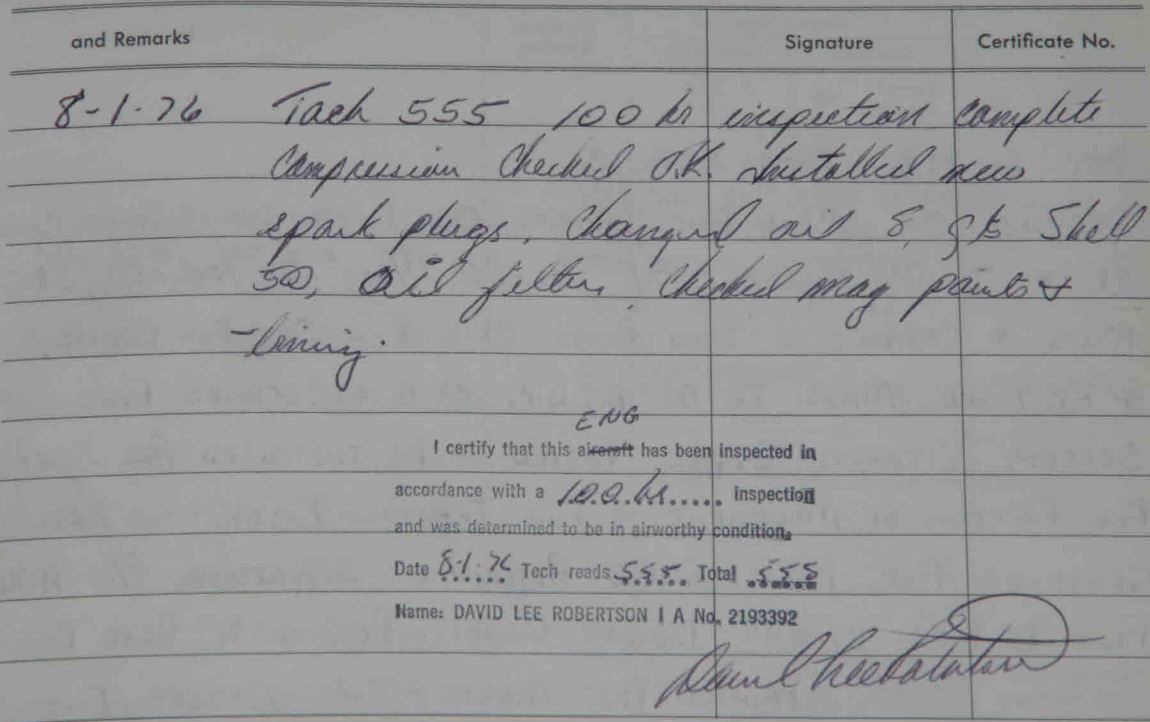 and Remarks Signature Certificate No.
8-1-76 Tach 555 100 hr inspection complete
Compression Checked O.K. Installed new
spark plugs, Changed oil 8 qts Shell
50, Oil filter, Checked mag points &
timing.
ENG
I certify that this aircraft has been inspected in
accordance with a 100 hr..... inspection
and was determined to be in airworthy condition.
Date 8-1-76 Tech reads 555 Total 555
Name: DAVID LEE ROBERTSON I A No. 2193392
David Lee Robertson